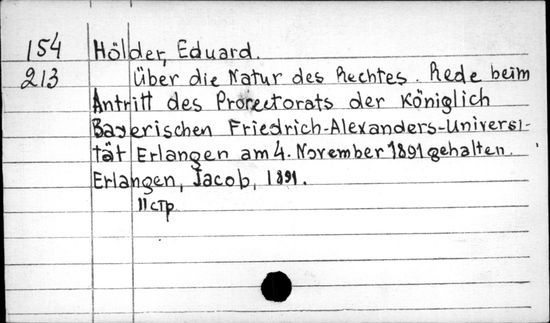 154 Hölder, Eduard.
213 Über die Natur des Rechtes. Rede beim
Antritt des Prorectorats der Königlich
Bayerischen Friedrich-Alexanders-Universi-
tät Erlangen am 4. November 1891 gehalten.
Erlangen, Jacob, 1891.
11 стр.